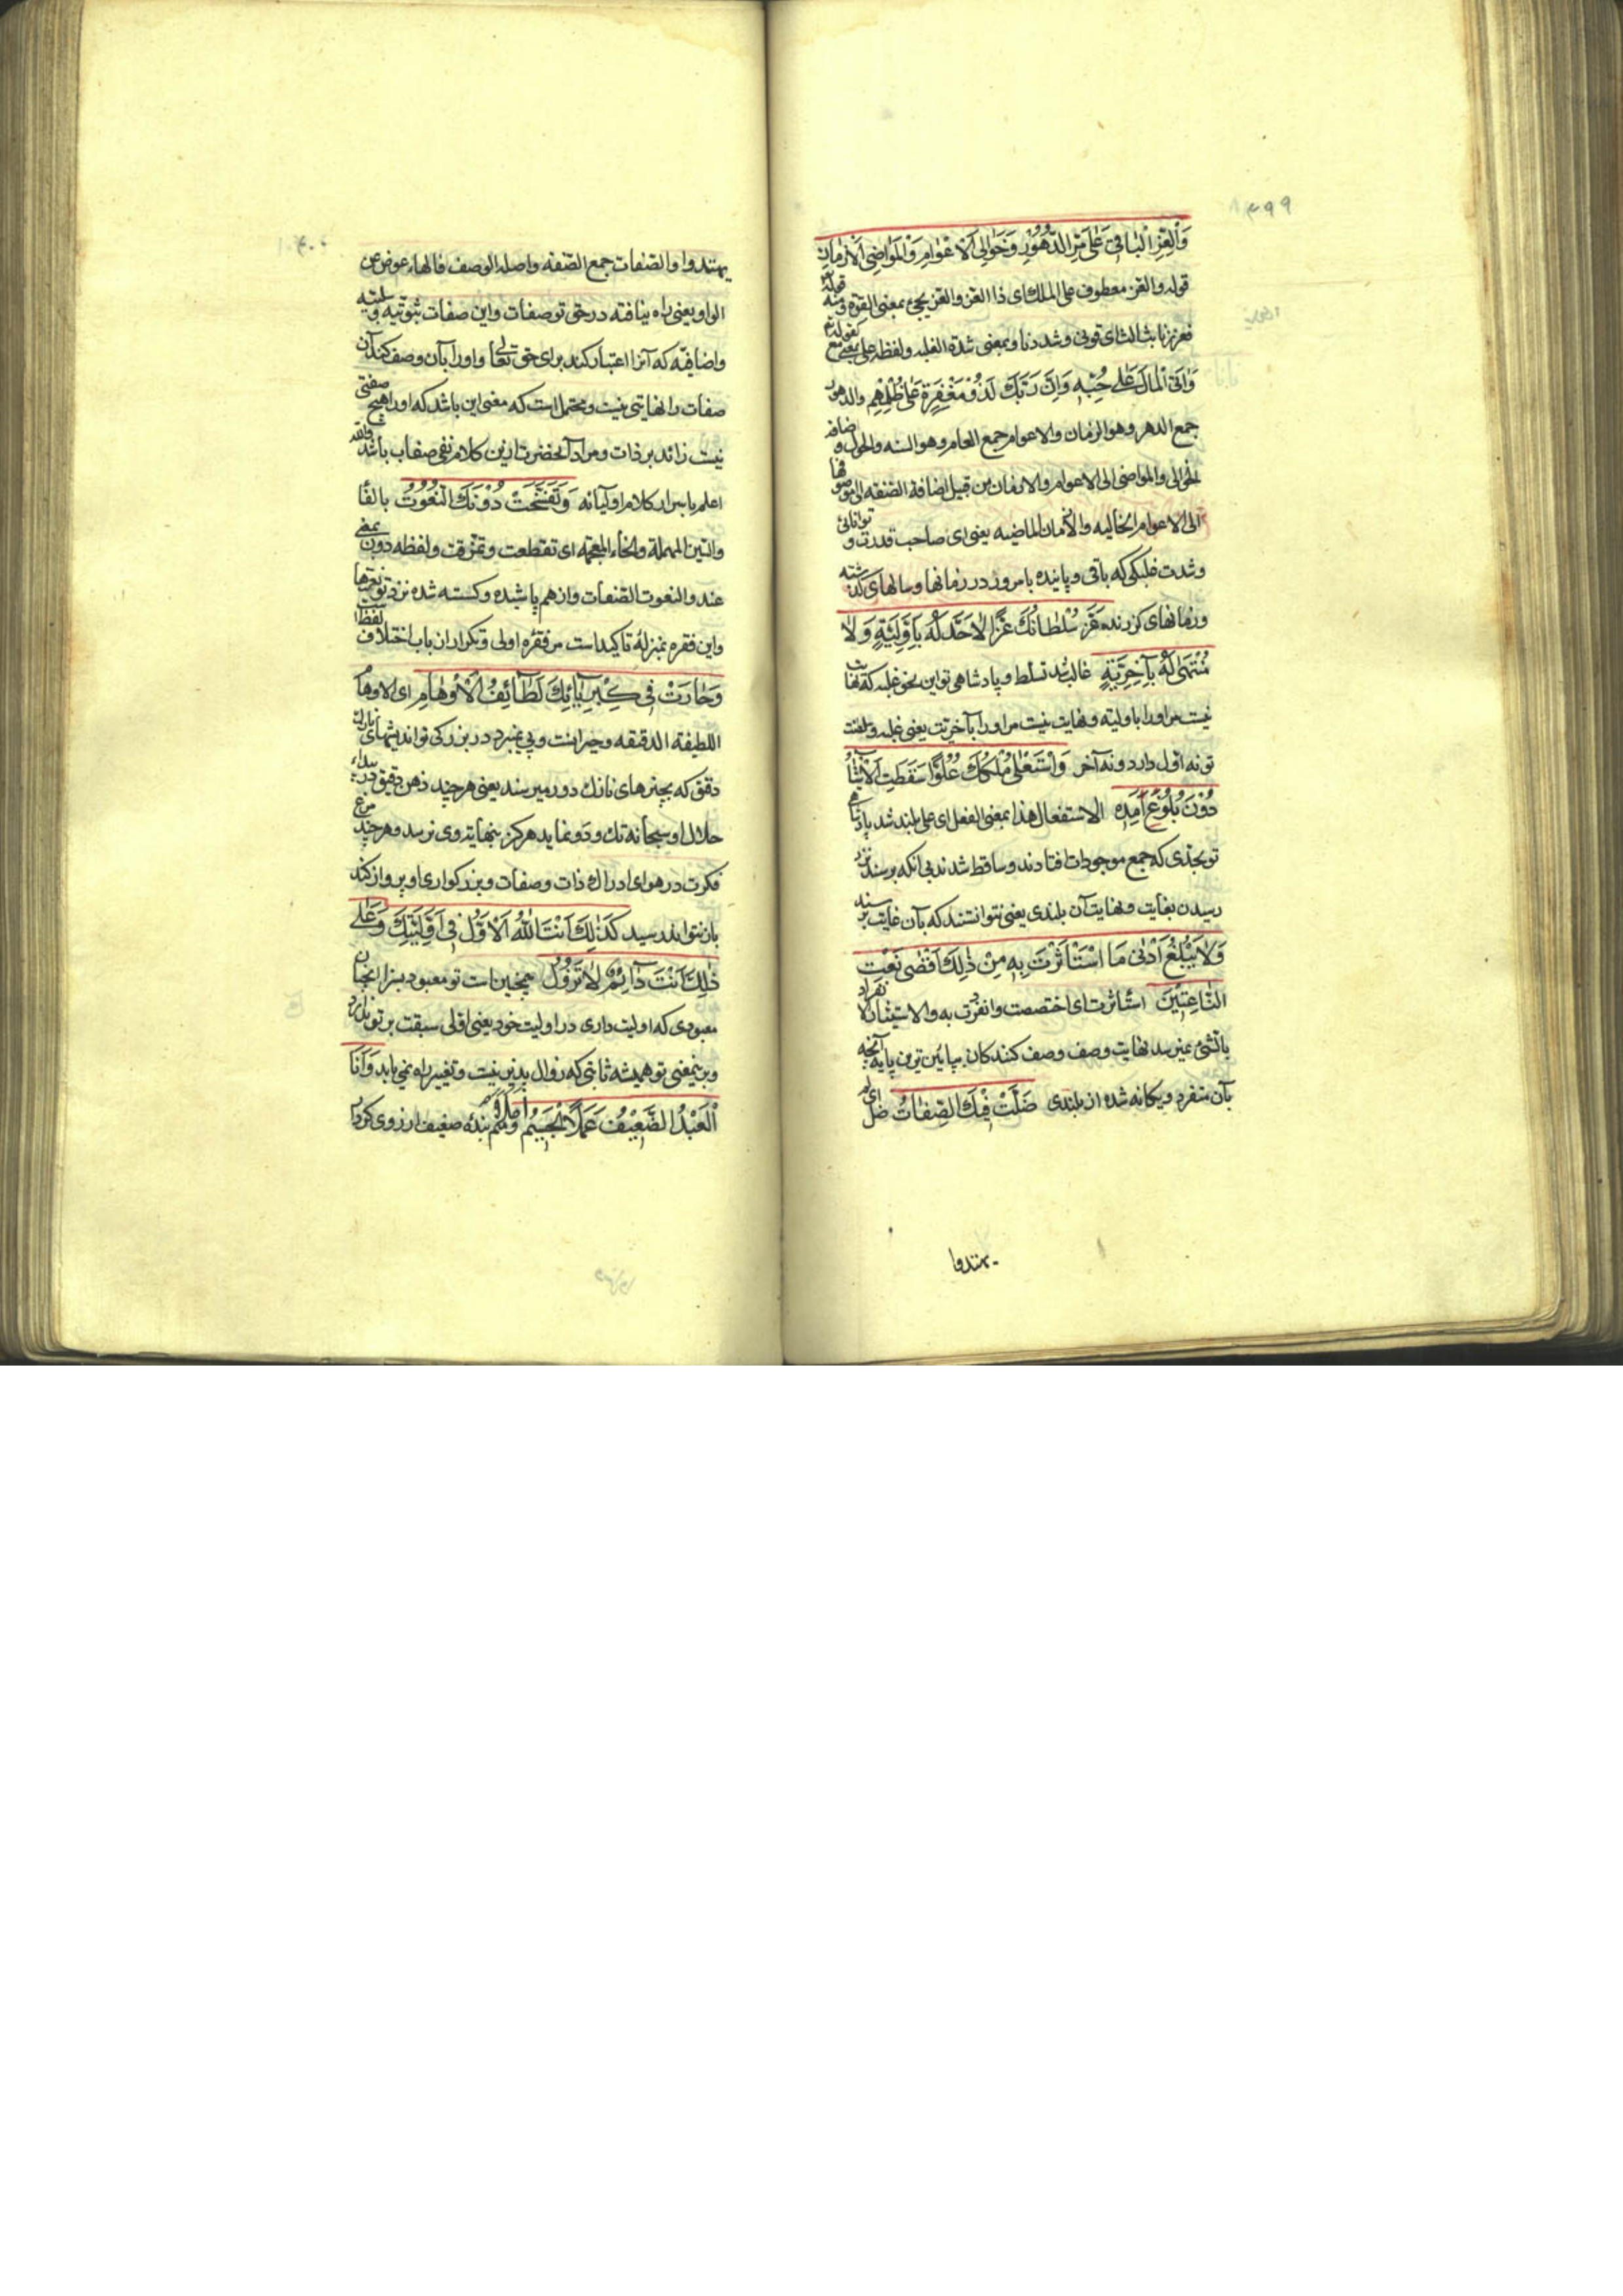 ۳۹۹
وَالْعِزِّ الْبٰاقِي عَلىٰ مَرِّ الدُّهُورِ وَخَوٰالِي الْاَعْوٰامِ وَالْمَوٰاضِي الْاَزْمٰانِ
قوله والعز معطوف على الملك اى ذا العز والعز يجىء بمعنى القوة ومنه قوله
فعززنا بثالث اى قوينا وشددنا وبمعنى شدة الغلبه ولفظه على بمعنى مع كقوله تع
وَاٰتَى الْمٰالَ عَلىٰ حُبِّهِ وَاِنَّ رَبَّكَ لَذُو مَغْفِرَةٍ عَلىٰ ظُلْمِهِمْ والدهور
جمع الدهر وهو الزمان والاعوام جمع العام وهو السنه والحول و اضافه
الخوالى والمواضى الى الاعوام والازمان من قبيل اضافة الصفه الى موصوفها
اى الاعوام الخاليه والازمان الماضيه يعنى اى صاحب قدرت و توانائى
وشدت غلبكى كه باقى وپاينده بامرور در زمانها وسالهاى گذشته
وزمانهاى گزرنده عَزَّ سُلْطٰانُكَ عِزًّا لٰا حَدَّ لَهُ بِاَوَّلِيَّةٍ وَلٰا
مُنْتَهىٰ لَهُ بِاٰخِرِيَّةٍ غالب شد تسلط و پادشاهى تو اين نحو غلبه كه نهايت
نيست مر اورا باوليته ونهايت نيست مر اورا بآخريت يعنى غلبه وسلطنت
تو نه اول دارد و نه آخر وَاسْتَعْلىٰ مُلْكُكَ عُلُوًّا سَقَطَتِ الْاَشْيٰاءُ
دُونَ بُلُوغِ اَمَدِهِ الاستفعال هذا بمعنى الفعل اى على بلند شد پادشاهى
تو بحدى كه جمع موجودات افتادند وساقط شدند بى آنكه برسند نزد
رسيدن بغايت ونهايت آن بلندى يعنى نتوانستند كه بآن غايت برسند
وَلٰا يَبْلُغُ اَدْنىٰ مَا اسْتَأْثَرْتَ بِهِ مِنْ ذٰلِكَ اَقْصىٰ نَعْتِ
النّٰاعِتِينَ استأثرت اى اختصصت وانفردت به والاستيثار الانفراد
بالشىء نميرسد نهايت وصف وصف كنندكان بپائين ترين پايه آنچه
بآن متفرد ويكانه شده از بلندى ضَلَّتْ فِيكَ الصِّفٰاتُ ضل اى لم
يهتدوا
۴۰۰
يهتدوا والصفات جمع الصفه واصله الوصف فالهاء عوض عن
الواو يعنى راه نيافته در حق تو صفات واين صفات ثبوتيه و سلبيه
واضافيه كه آنرا اعتبار كنند براى حق تعالى و اورا بآن وصف كنند آن
صفات را نهايتى نيست ومحتمل است كه معنى اين باشد كه اورا هيچ صفتى
نيست زائد بر ذات ومراد آنحضرت ازين كلام نفى صفات باشد والله
اعلم باسرار كلام اوليائه وَتَفَسَّخَتْ دُونَكَ النُّعُوتُ بالفاء
والسين المهملة والخاء المعجمه اى تقطعت وتمزقت ولفظه دون بمعنى
عند والنعوت الصفات واز هم پاشيده وكسسته شده نزد تو نعتها
واين فقره بمنزلهٔ تاكيد است مر فقره اولى وتكرار ان باب اختلاف لفظ است
وَحٰارَتْ فِي كِبْرِيٰائِكَ لَطٰائِفُ الْاَوْهٰامِ اى الاوهام
اللطيفة الدقيقه وحيرانست وپى نميبرد در بزركى تو انديشهاى نازك
دقيق كه بچيزهاى نازك دور ميرسند يعنى هر چند ذهن دقيق در بيداء
جلال او سبحانه تك و دو نمايد هركز بنهايت وى نرسد وهر چند مرغ
فكرت در هواى ادراك ذات وصفات وبزركوارى او پرواز كند
بان نتواند رسيد كَذٰلِكَ اَنْتَ اللّٰهُ الْاَوَّلُ فِي اَوَّلِيَّتِكَ وَعَلىٰ
ذٰلِكَ اَنْتَ دٰائِمٌ لٰا تَزُولُ همچنين است تو معبود بسزا انچنان
معبودى كه اوليت دارى در اوليت خود يعنى اولى سبقت بر تو ندارد
وبرينمعنى تو هميشه ثابتى كه زوال پذير نيست وتغيير راه نمى يابد وَاَنَا
الْعَبْدُ الضَّعِيفُ عَمَلًا الْجَسِيمُ اَمَلًا ومنم بندهٔ ضعيف از روى كردار